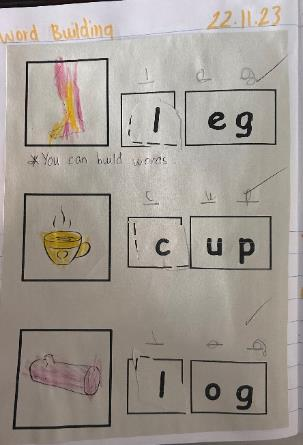 Word Building 22.11.23
l e g
l eg
* You can build words.
c u p
c up
l o g
l og